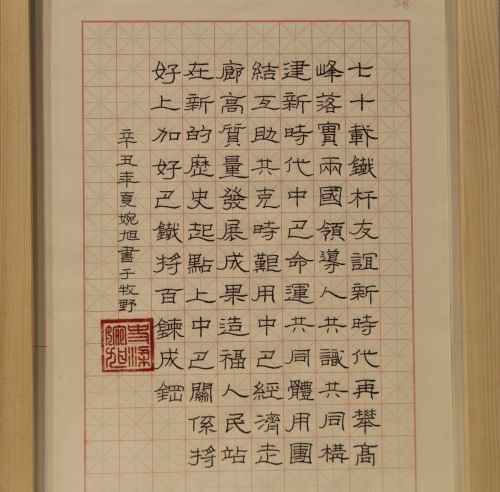 28
七十載鐵杆友誼新時代再攀高
峰落實兩國領導人共識共同構
建新時代中巴命運共同體用團
結互助共克時艱用中巴經濟走
廊高質量發展成果造福人民站
在新的歷史起點上中巴關係將
好上加好巴鐵將百鍊成鋼
辛丑年夏婉旭書于牧野